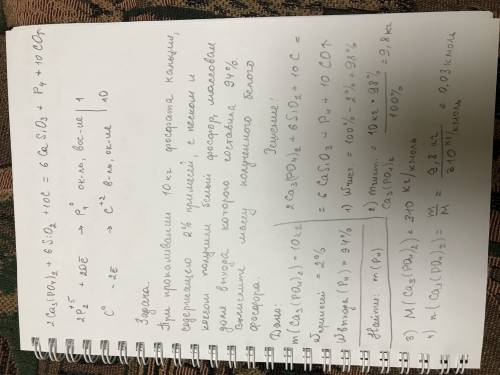 2Ca3(PO4)2 + 6SiO2 + 10C = 6CaSiO3 + P4 + 10CO↑
2P2⁺⁵ + 20ē → P4⁰ ок-ль, вос-ие | 1
C⁰ - 2ē → C⁺² в-ль, ок-ие | 10
Задача.
При прокаливании 10 кг фосфата кальция,
содержащего 2% примесей, с песком и
коксом получили белый фосфор, массовая
доля выхода которого составила 94%.
Вычислите массу полученного белого
фосфора.
Дано:
m(Ca3(PO4)2) = 10 кг
ω примесей = 2%
ω выхода (P4) = 94%
Найти: m(P4)
Решение:
2Ca3(PO4)2 + 6SiO2 + 10C =
= 6CaSiO3 + P4 + 10CO↑
1) ω чист. = 100% - 2% = 98%
2) m чист. Ca3(PO4)2 = 10 кг * 98% / 100% = 9,8 кг
3) M(Ca3(PO4)2) = 310 кг/кмоль
4) n(Ca3(PO4)2) = m/M = 9,8 кг / 310 кг/кмоль = 0,03 кмоль